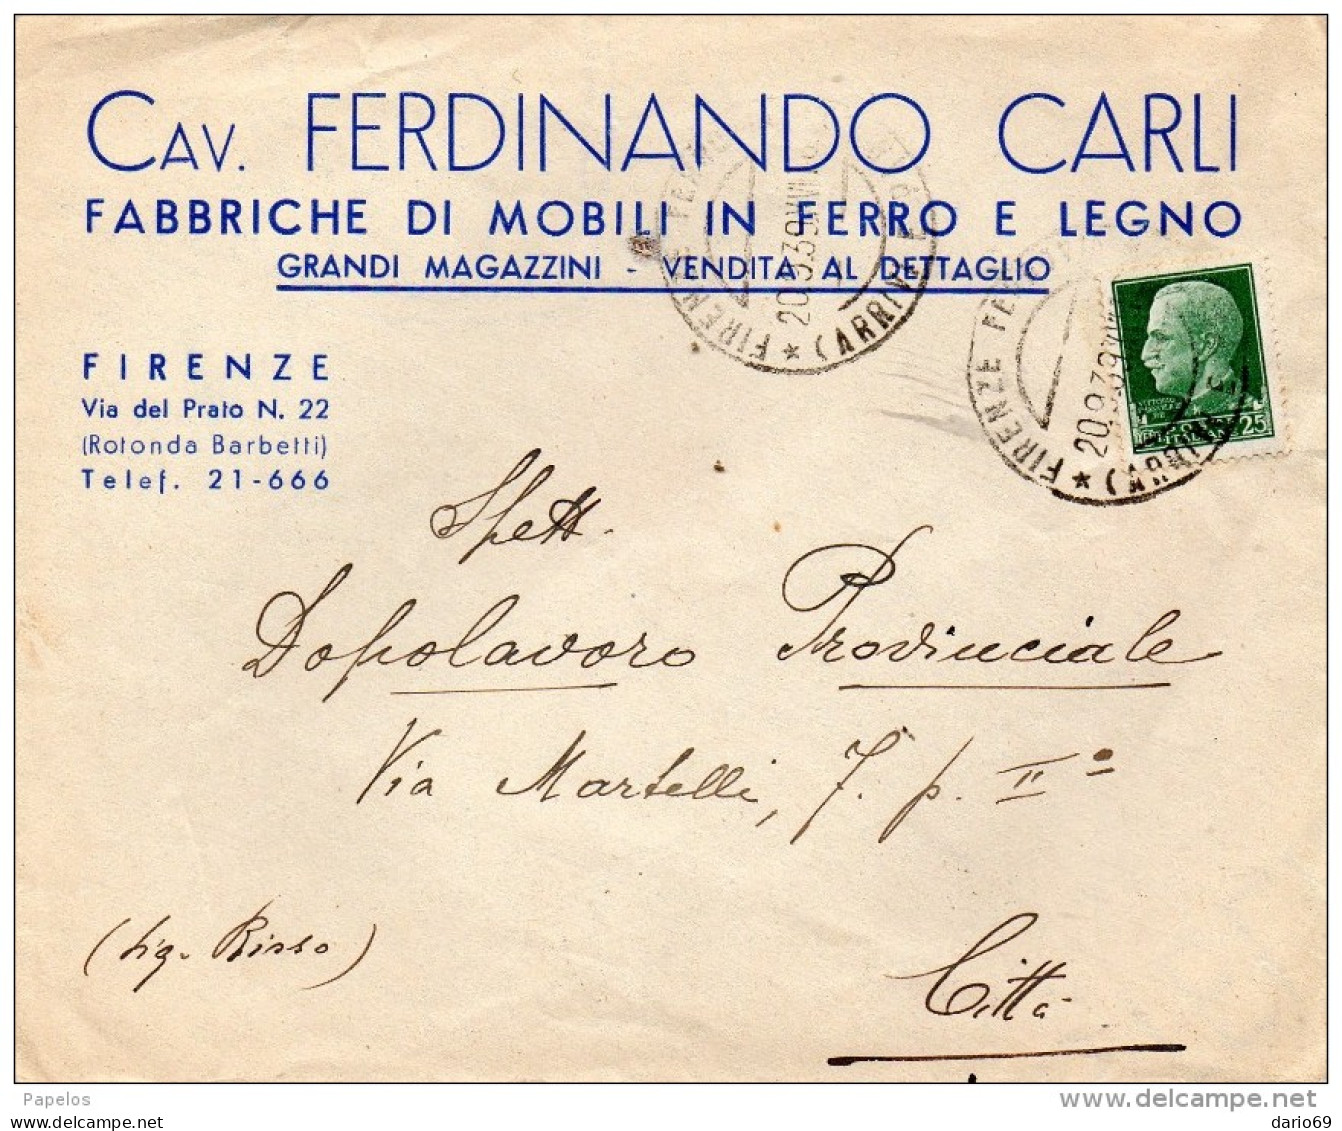 CAV. FERDINANDO CARLI
FABBRICHE DI MOBILI IN FERRO E LEGNO
GRANDI MAGAZZINI - VENDITA AL DETTAGLIO
FIRENZE
Via del Prato N. 22
(Rotonda Barbetti)
Telef. 21-666
FIRENZE FERR
20.9.39 XVII
★ (ARRIVI E
FIRENZE FERR
20.9.39 XVII
★ (ARRIVI
25
Spett.
Dopolavoro Provinciale
Via Martelli, 7. p. II°
(Sig. Risso)
Città
Papelos
www.delcampe.net
dario69